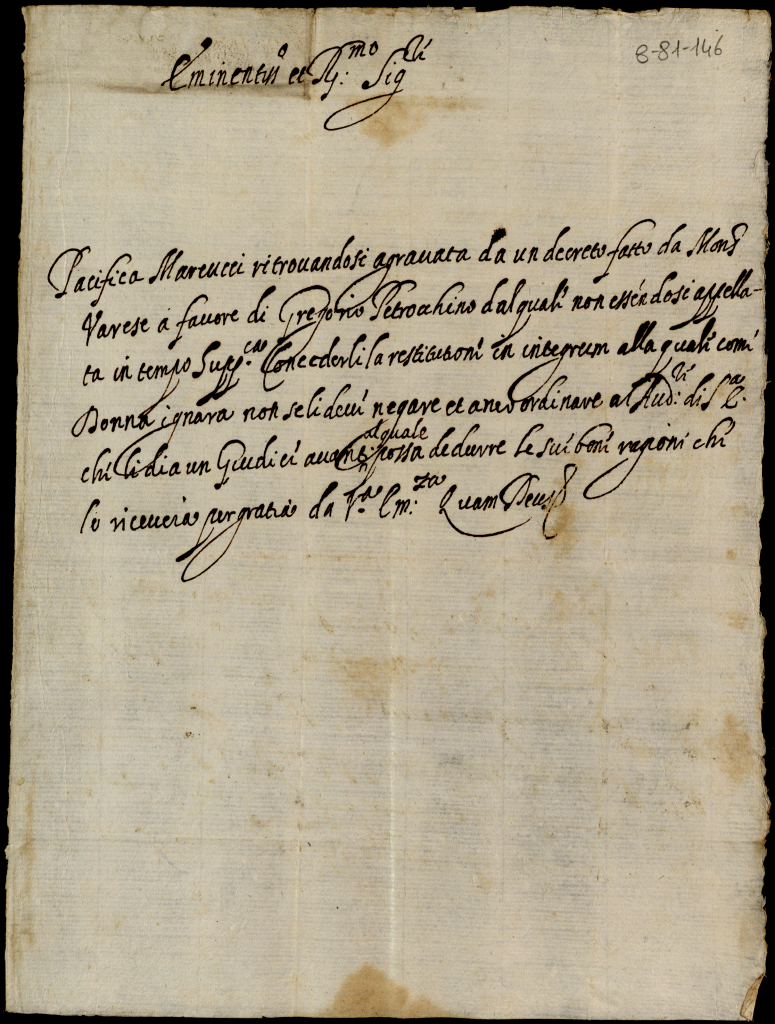 8-81-146
Eminentiss.o et R.mo Sig.re
Pacifica Mareucci ritrouandosi agrauata da un decreto fatto da Mons.r
Varese à fauore di Gregorio Petrocchino dal quali non essendosi appella-
ta in tempo Supp.ca Concederli la restitutioni in integrum alla quali comi
Donna ignara non se li deui negare et anco ordinare al Aud.re di S.a E.
chi li dia un Giudici auanti al quale possa dedurre le sui boni ragioni chi
lo riceuerà per gratia da V.a Em.za Quam Deus